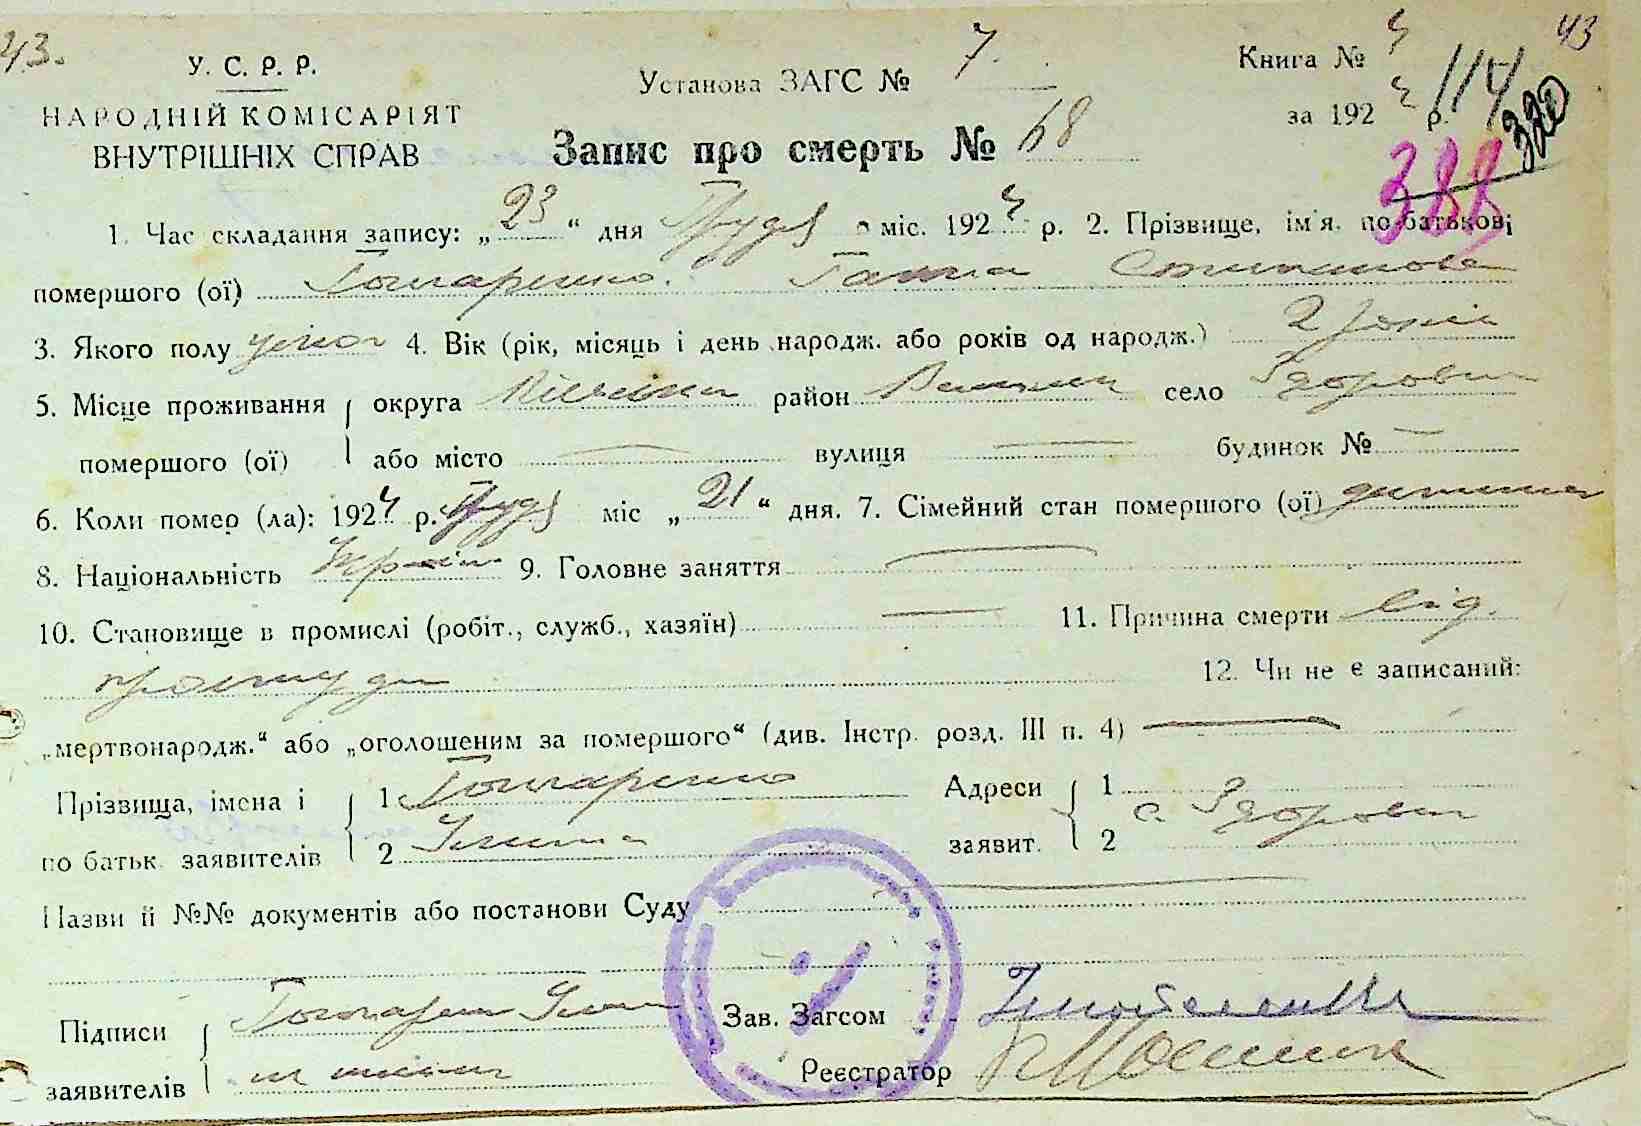 43. 43
У. С. Р. Р.
НАРОДНІЙ КОМІСАРІЯТ
ВНУТРІШНІХ СПРАВ
Установа ЗАГС № 7
Запис про смерть № 68
Книга № 4
за 1924 р. 114
320
388
1. Час складання запису: „23“ дня Груд міс. 1924 р. 2. Прізвище, ім'я, по батькові
помершого (ої) Гончаренко Ганна
3. Якого полу жіноч 4. Вік (рік, місяць і день народж. або років од народж.) 2 роки
5. Місце проживання помершого (ої) округа район село Здоровки
або місто — вулиця — будинок № —
6. Коли помер (ла): 1924 р. Груд міс „21“ дня. 7. Сімейний стан помершого (ої) дитина
8. Національність Україн 9. Головне заняття —
10. Становище в промислі (робіт., служб., хазяїн) — 11. Причина смерти від
простуди 12. Чи не є записаний:
„мертвонародж.“ або „оголошеним за помершого“ (див. Інстр. розд. III п. 4) —
Прізвища, імена і по батьк. заявителів 1 Гончаренко
2
Адреси заявит. 1
с. Здоровки
2
Назви й №№ документів або постанови Суду —
Підписи заявителів Гончарен
Зав. Загсом
Реєстратор